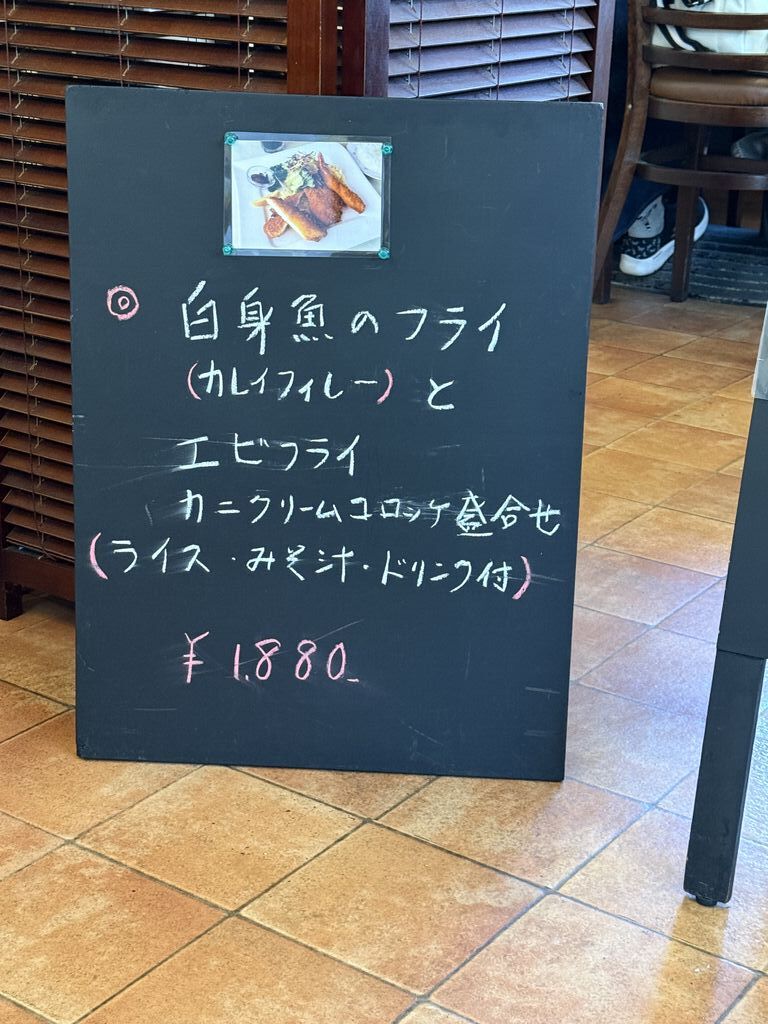 ◎ 白身魚のフライ
(カレイフィレー)と
エビフライ
カニクリームコロッケ盛合せ
(ライス・みそ汁・ドリンク付)
¥1.880_